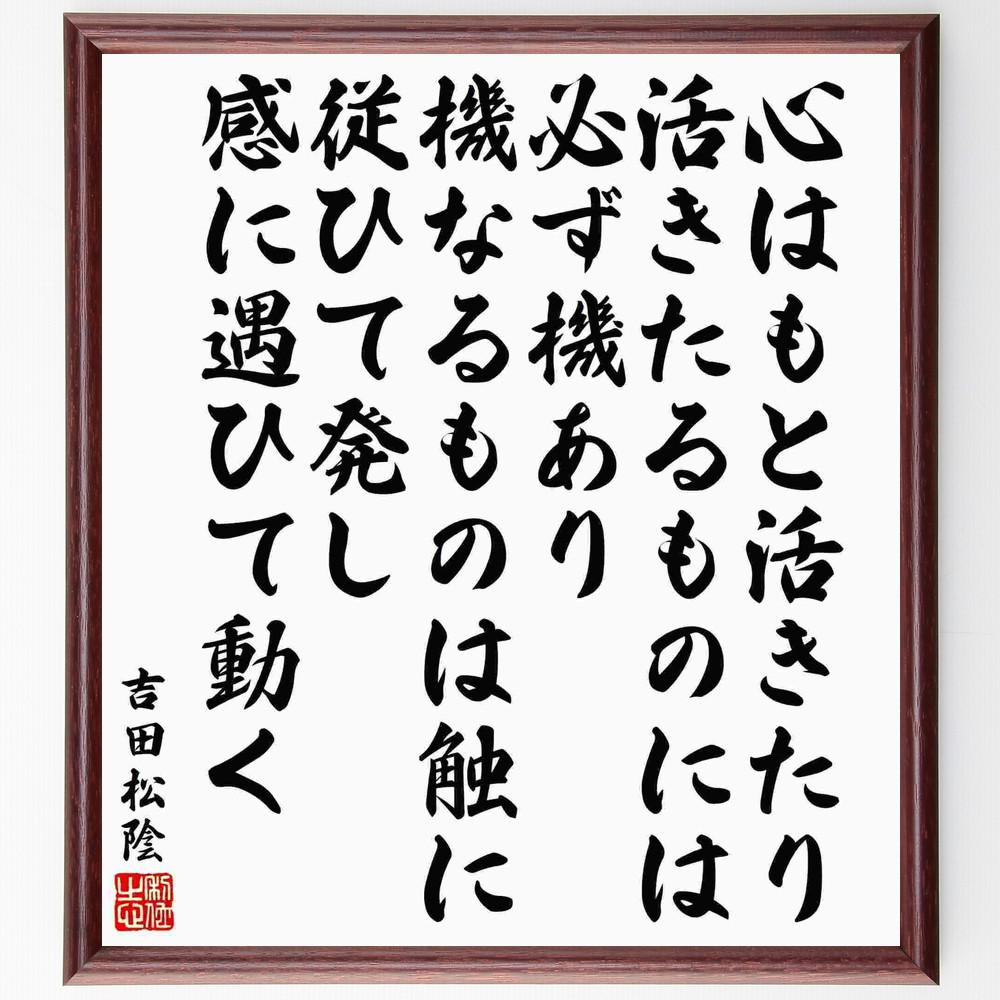 心はもと活きたり
活きたるものには
必ず機あり
機なるものは触に
従ひて発し
感に遇ひて動く
吉田松陰